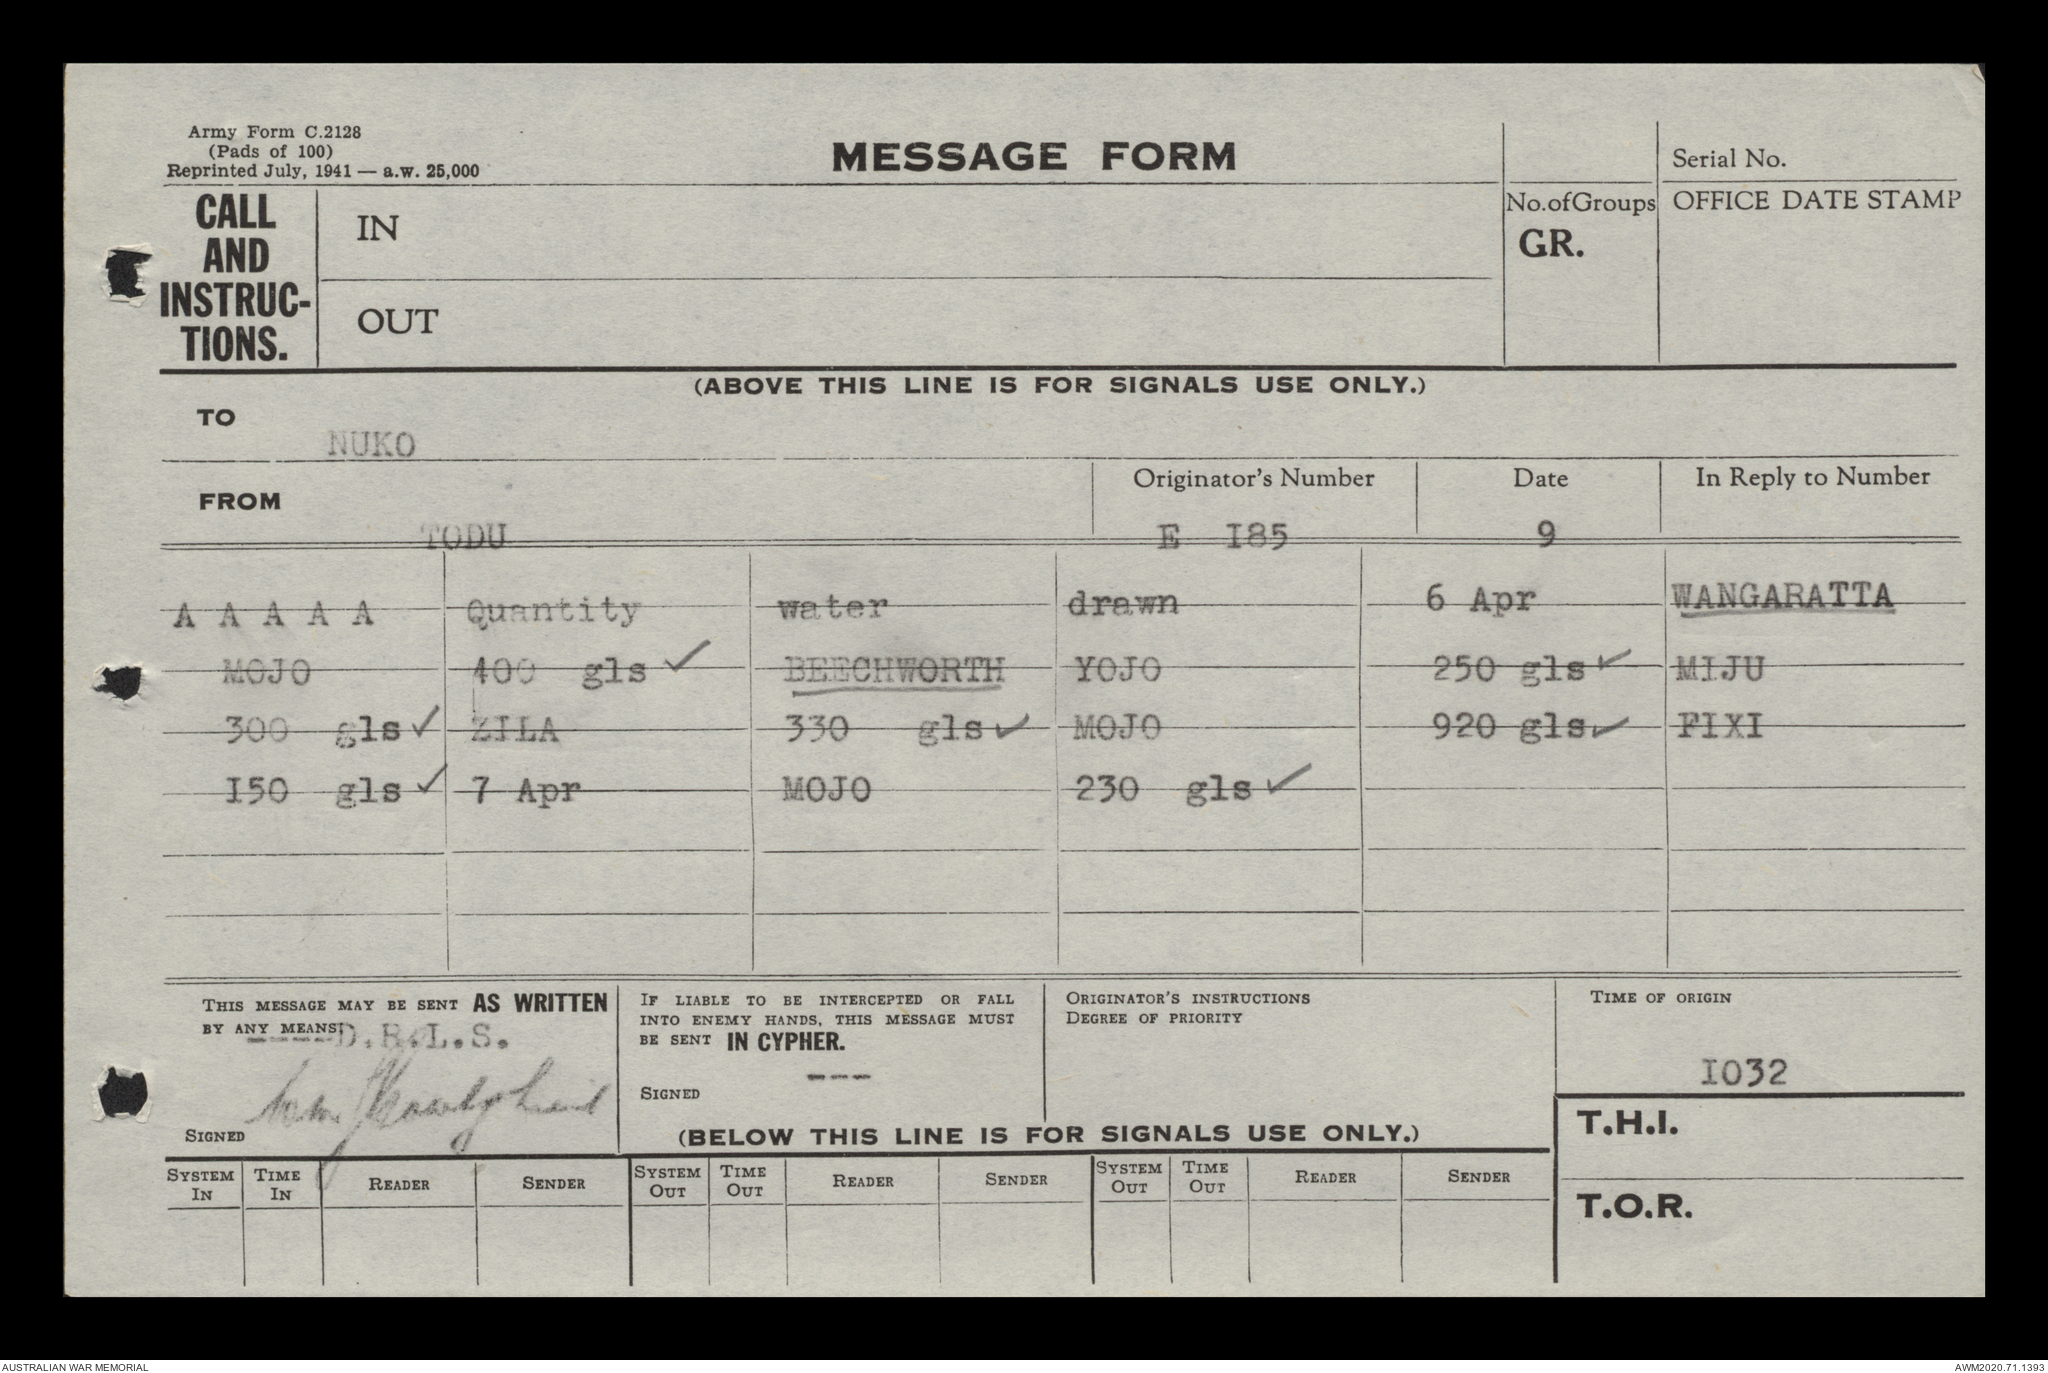 Army Form C.2128
(Pads of 100)
Reprinted July, 1941 — a.w. 25,000
MESSAGE FORM
Serial No.
CALL
AND
INSTRUC-
TIONS.
IN
OUT
No.ofGroups
GR.
OFFICE DATE STAMP
(ABOVE THIS LINE IS FOR SIGNALS USE ONLY.)
TO
NUKO
FROM
TODU
Originator's Number
E I85
Date
9
In Reply to Number
A A A A A Quantity water drawn 6 Apr WANGARATTA
MOJO 400 gls ✓ BEECHWORTH YOJO 250 gls ✓ MIJU
300 gls ✓ ZILA 330 gls ✓ MOJO 920 gls ✓ FIXI
I50 gls ✓ 7 Apr MOJO 230 gls ✓
THIS MESSAGE MAY BE SENT AS WRITTEN
BY ANY MEANS
----D.R.L.S.
SIGNED
IF LIABLE TO BE INTERCEPTED OR FALL
INTO ENEMY HANDS, THIS MESSAGE MUST
BE SENT IN CYPHER.
---
SIGNED
ORIGINATOR'S INSTRUCTIONS
DEGREE OF PRIORITY
TIME OF ORIGIN
I032
(BELOW THIS LINE IS FOR SIGNALS USE ONLY.)
T.H.I.
SYSTEM IN TIME IN READER SENDER SYSTEM OUT TIME OUT READER SENDER SYSTEM OUT TIME OUT READER SENDER
T.O.R.
AUSTRALIAN WAR MEMORIAL
AWM2020.71.1393